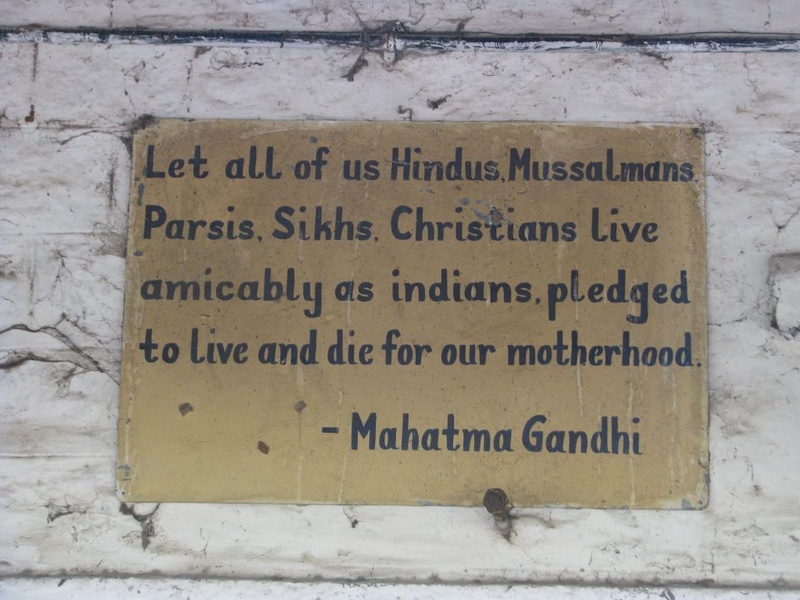 Let all of us Hindus, Mussalmans,
Parsis, Sikhs, Christians live
amicably as indians, pledged
to live and die for our motherhood.
- Mahatma Gandhi